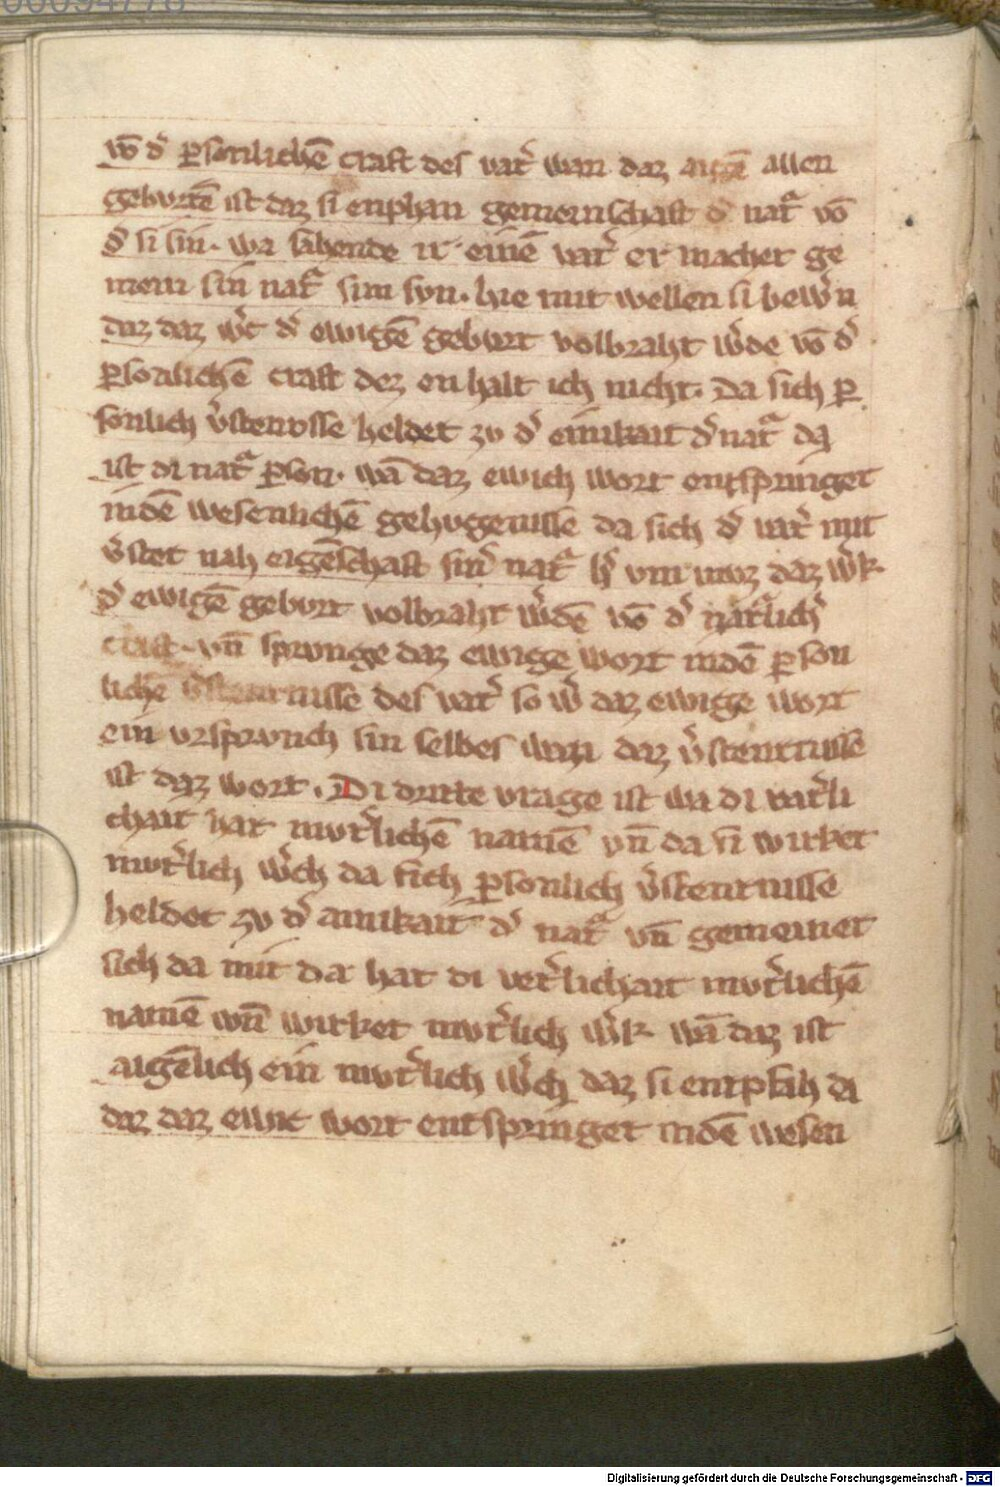 vō d͛ ꝑsonlichē craft des vat͛ wan daz aigē allen
geburtē ist daz si enphan gemeinschaft d͛ natᷓ vō
d͛ si sin. wa habende ir einē vat͛ er machet ge
mein sin natᷓ sim syn. hie mit wellen si bew͛n
daz daz w͛c d͛ ewigē geburt volbraht w͛de vō d͛
ꝑsonlichē craft dez en halt ich nicht. Da sich ꝑ
sonlich v͛stentnisse heldet zu d͛ einikait d͛ natᷓ da
ist di natᷓ ꝑson. wā daz ewich wort entspringet
indē wesenlichē gehugenisse da sich d͛ vat͛ mit
v͛stet nah eigēschaft sin͛ natᷓ h͛ vm muz daz w͛k
d͛ ewigē geburt volbraht w͛dē vō d͛ natᷓlich͛
craft. vn̄ sprunge daz ewige wort indē ꝑson
lichē v͛stentnisse des vat͛ so w͛ daz ewige wort
ein ursprunch sin selbes wan daz v͛stentnisse
ist daz wort. Di dritte vrage ist wa di vat͛li
chait hat mut͛lichē namē vn̄ da si wirket
mut͛lich w͛ch da sich ꝑsonlich v͛stentnisse
heldet zu d͛ ainikait d͛ natᷓ vn̄ gemeinet
sich da mit da hat di vet͛lichait mut͛lichē
namē vn̄ wirket mut͛lich w͛k wā daz ist
aigēlich ein mut͛lich w͛ch daz si entpfah da
daz daz ewic wort entspringet indē wesen
00094778
Digitalisierung gefördert durch die Deutsche Forschungsgemeinschaft - DFG